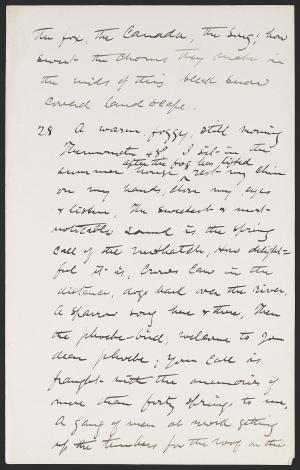 the fox, the Canada, the song; how
sweet the chorus they make in
the midst of this bleak snow
covered landscape.
28 A warm, foggy, still morning
Thermometer 48°. I sit in the
after the fog has lifted
summer house, rest my chin
on my hands, close my eyes
& listen. The sweetest & most
noticable sound is the spring
call of the nuthatch, How delight-
ful it is, Crows caw in the
distance, dogs bark over the river,
A sparrow song here & there, Then
the phoebe-bird, welcome to you
dear phoebe; your call is
fraught with the memories of
more than forty springs to me,
A gang of men at work getting
up the timbers for the roof on the